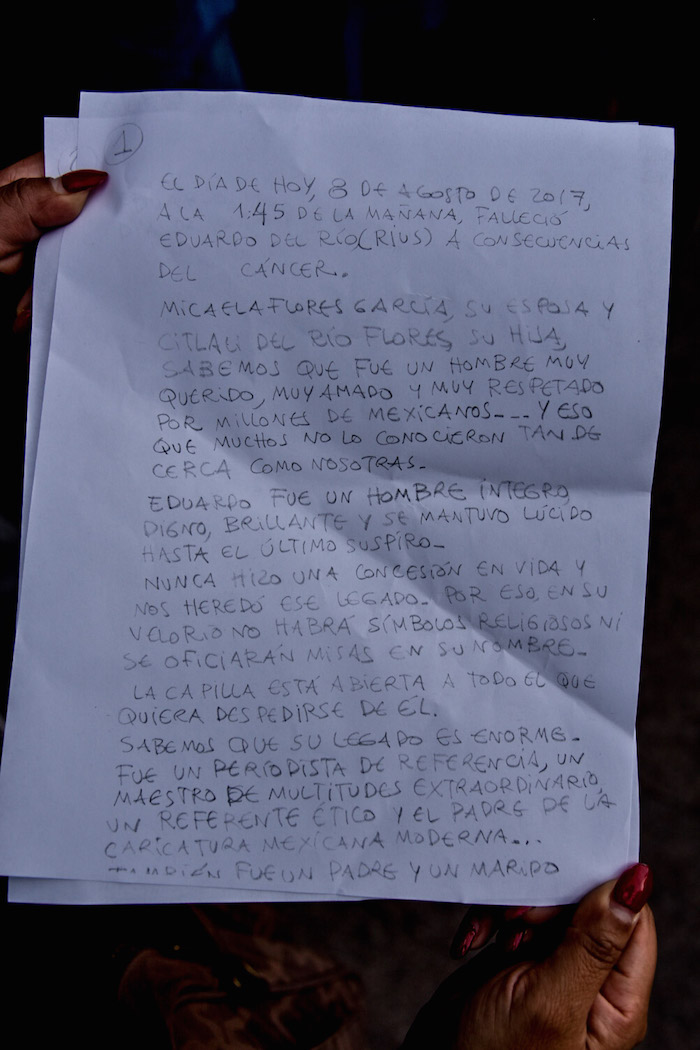 1
EL DÍA DE HOY, 8 DE AGOSTO DE 2017,
A LA 1:45 DE LA MAÑANA, FALLECIÓ
EDUARDO DEL RÍO, (RIUS) A CONSECUENCIAS
DEL CÁNCER..
MICAELA FLORES GARCÍA, SU ESPOSA Y
CITLALI DEL RÍO FLORES, SU HIJA,
SABEMOS QUE FUE UN HOMBRE MUY
QUERIDO, MUY AMADO Y MUY RESPETADO
POR MILLONES DE MEXICANOS--- Y ESO
QUE MUCHOS NO LO CONOCIERON TAN DE
CERCA COMO NOSOTRAS-
EDUARDO FUE UN HOMBRE ÍNTEGRO,
DIGNO, BRILLANTE Y SE MANTUVO LÚCIDO
HASTA EL ÚLTIMO SUSPIRO-
NUNCA HIZO UNA CONCESIÓN EN VIDA Y
NOS HEREDÓ ESE LEGADO- POR ESO, EN SU
VELORIO NO HABRÁ SÍMBOLOS RELIGIOSOS NI
SE OFICIARÁN MISAS EN SU NOMBRE-
LA CAPILLA ESTÁ ABIERTA A TODO EL QUE
QUIERA DESPEDIRSE DE ÉL.
SABEMOS QUE SU LEGADO ES ENORME-
FUE UN PERIODISTA DE REFERENCIA, UN
MAESTRO DE MULTITUDES EXTRAORDINARIO,
UN REFERENTE ÉTICO Y EL PADRE DE LA
CARICATURA MEXICANA MODERNA...
TAMBIÉN FUE UN PADRE Y UN MARIDO